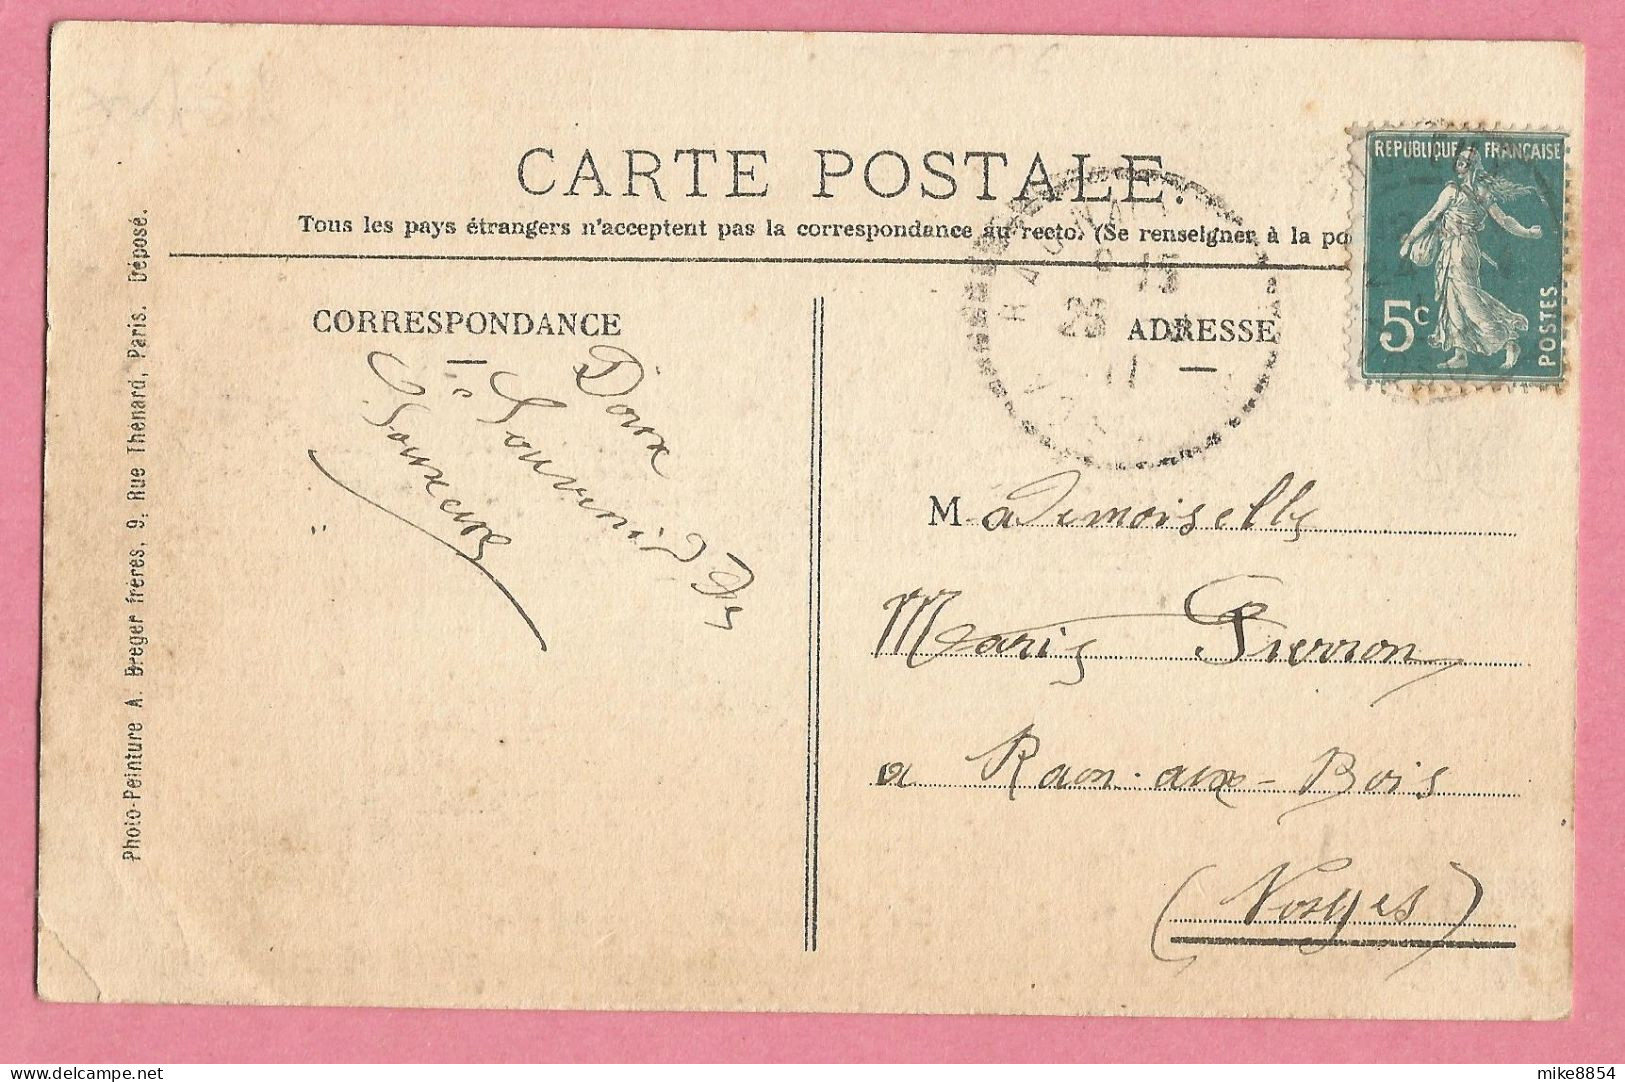 CARTE POSTALE.
Tous les pays étrangers n'acceptent pas la correspondance au recto. (Se renseigner à la po
RÉPUBLIQUE FRANÇAISE
5c
POSTES
RAON
VOSGES
15
25
11
CORRESPONDANCE
ADRESSE
Doux
Souvenir
Mademoiselle
Marie Pierron
a Raon-aux-Bois
(Vosges)
Photo-Peinture A. Breger frères, 9, Rue Thenard, Paris. Déposé.
delcampe.net
mike8854